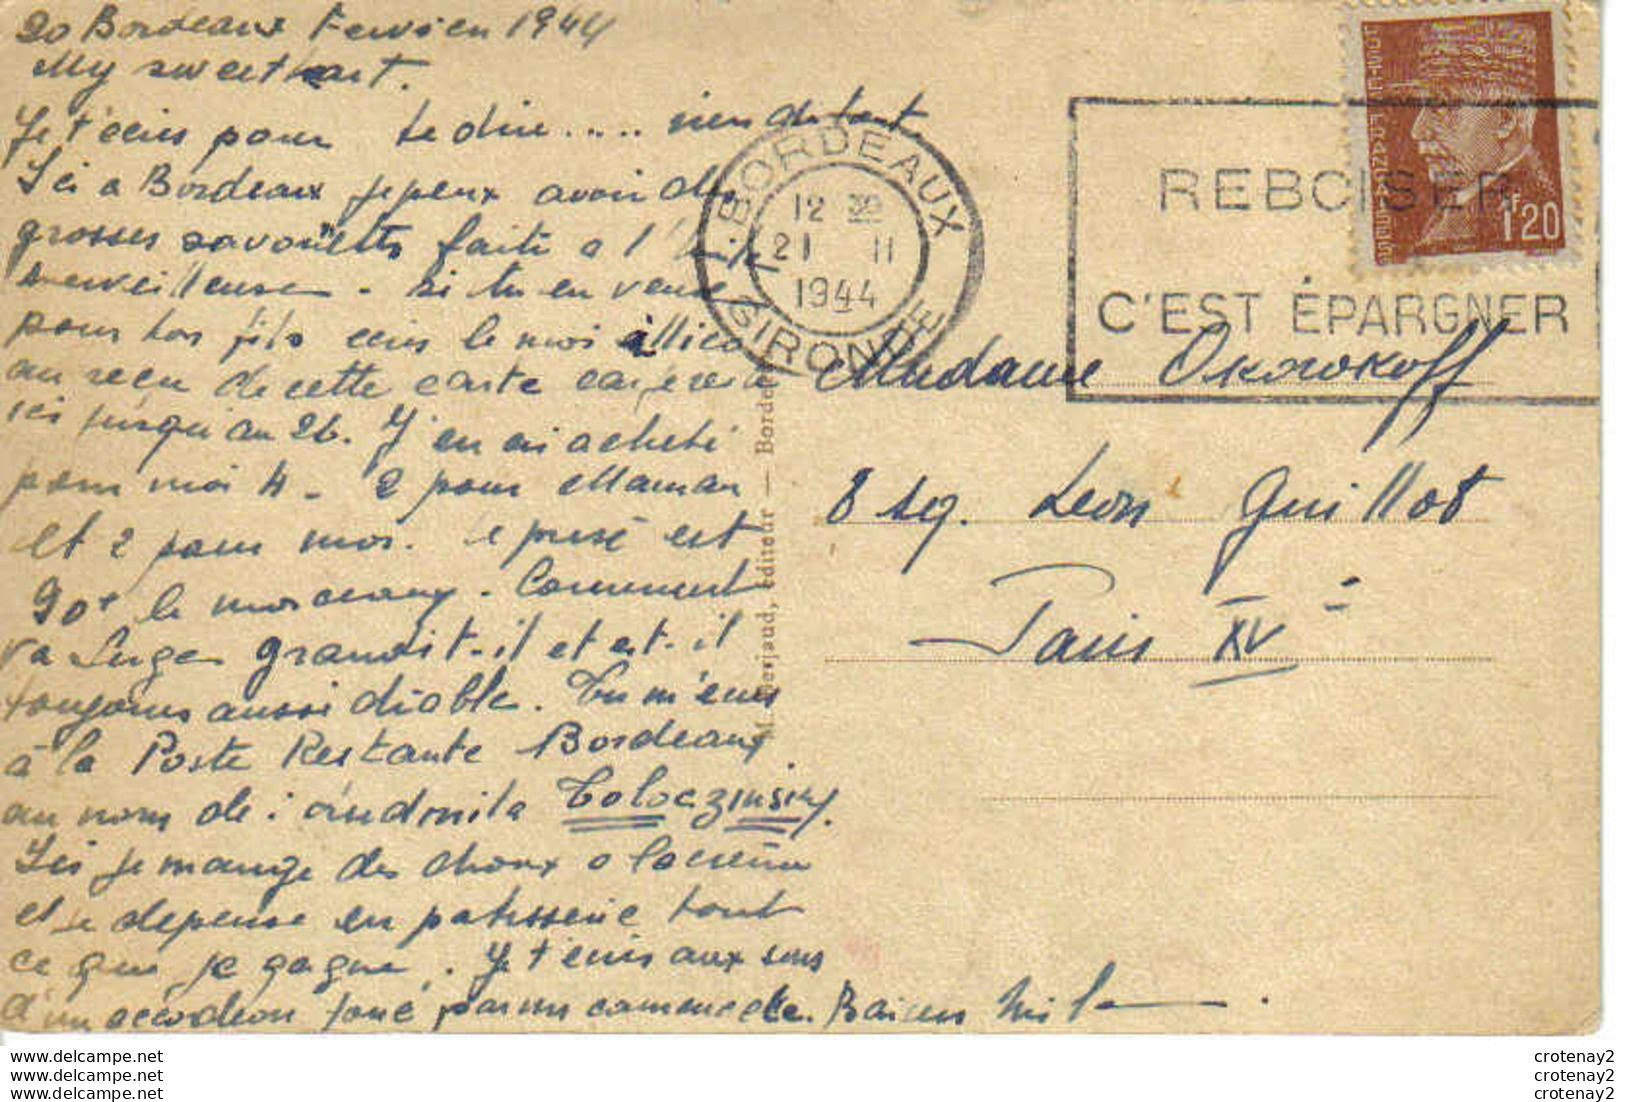 20 Bordeaux Fevrier 1944
My sweetheart.
Je t'écris pour te dire..... rien du tout.
Ici a Bordeaux je peux avoir des
grosses savonettes faite a l'huile
merveilleuse - Si tu en veux
pour ton fils ecris le moi illico
au reçu de cette carte car je reste
ici jusqu'au 26. J'en ai acheté
pour moi 4 - 2 pour Maman
et 2 pour moi. Le prix est
90f le morceau - Comment
va Serge grandit-il et est-il
toujours aussi diable. Tu m'ecris
à la Poste Restante Bordeaux
au nom de : Ludmila Toloczinsky.
Ici je mange des choux a la crème
et je depense en patisserie tout
ce que je gagne. Je t'ecris aux sons
d'un accordeon joué par un Baisers Mila
M. Berjaud, éditeur — Bordeaux
BORDEAUX
12 30
21 II
1944
GIRONDE
REBOISER
C'EST ÉPARGNER
1f20
Madame Okorokoff
8 sq. Leon Guillot
Paris XV
www.delcampe.net
www.delcampe.net
www.delcampe.net
crotenay2
crotenay2
crotenay2